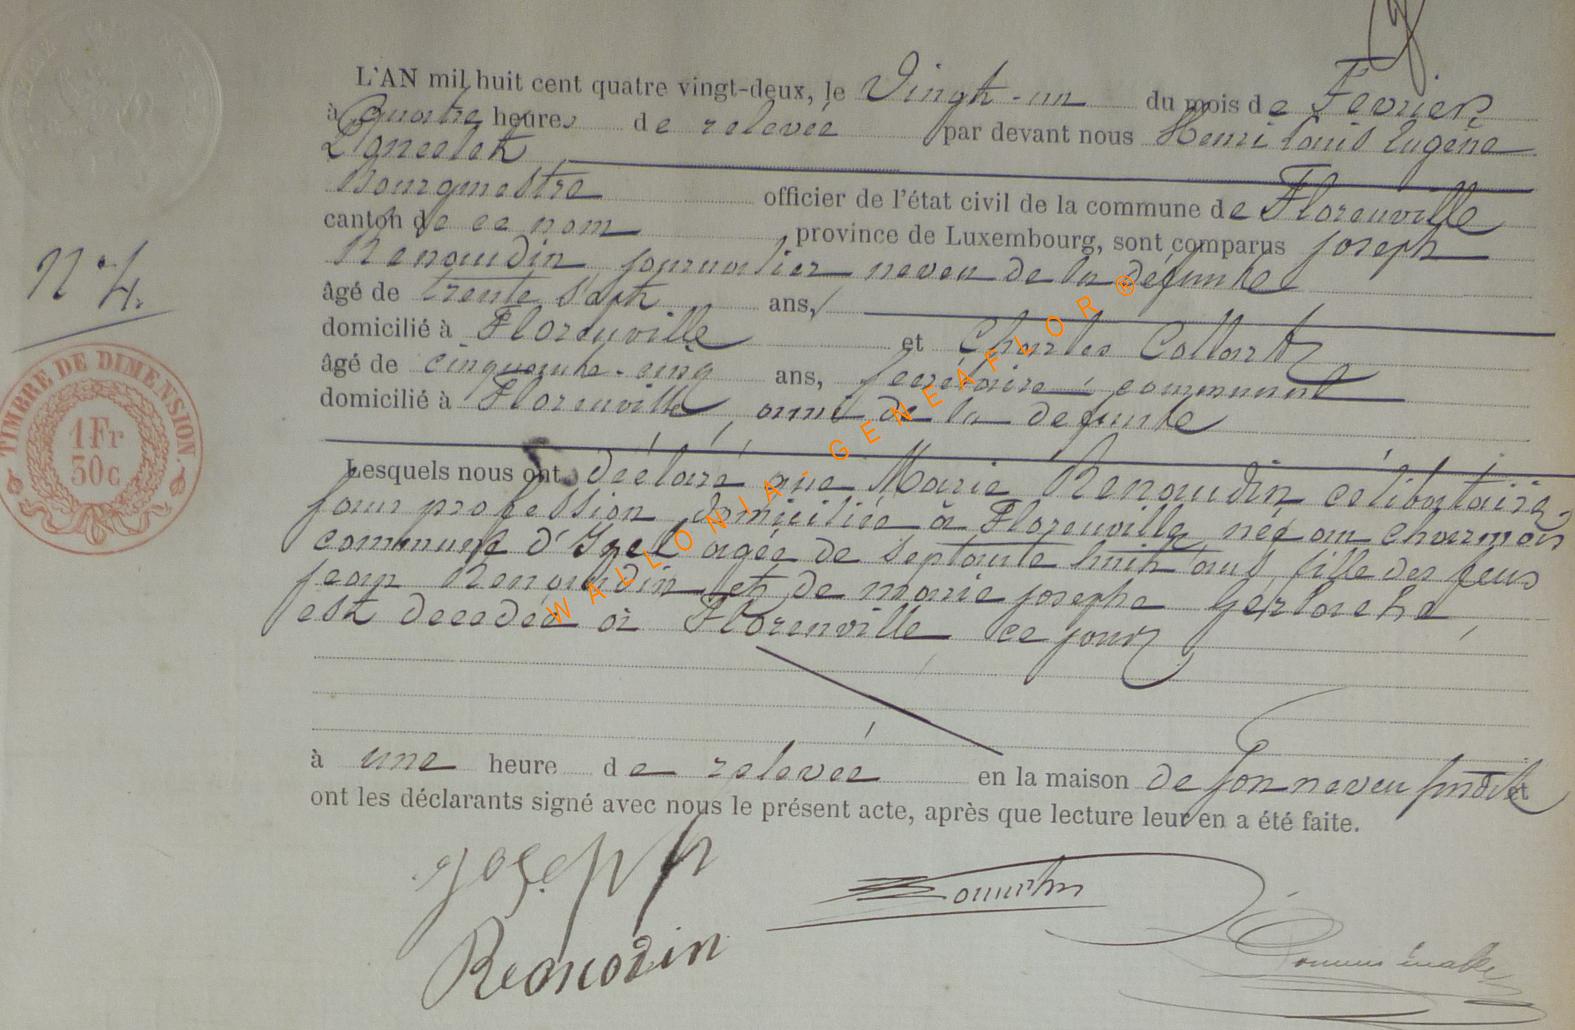 L'AN mil huit cent quatre vingt-deux, le Vingt-un du mois de Fevrier
à quatre heures de relevée par devant nous Henri Louis Eugène
Bourgmestre officier de l'état civil de la commune de Florenville
canton de ce nom province de Luxembourg, sont comparus joseph
Renaudin journalier neveu de la défunte
N° 4.
âgé de trente sept ans,
domicilié à Florenville et Charles Collart
âgé de cinquante-cinq ans, secrétaire communal
domicilié à Florenville, ami de la defunte
TIMBRE DE DIMENSION.
1Fr
50c
Lesquels nous ont déclaré que Marie Renaudin célibataire,
sans profession domiciliée à Florenville, née au charmois
commune d'Izel agée de septante huit ans, fille des feus
jean Renaudin et de marie josephe gerlache,
est decedée à Florenville ce jour
à une heure de relevée en la maison de son neveu susdit et
ont les déclarants signé avec nous le présent acte, après que lecture leur en a été faite.
joseph
Renodin
WALLONIA - GENEAFLOR ®